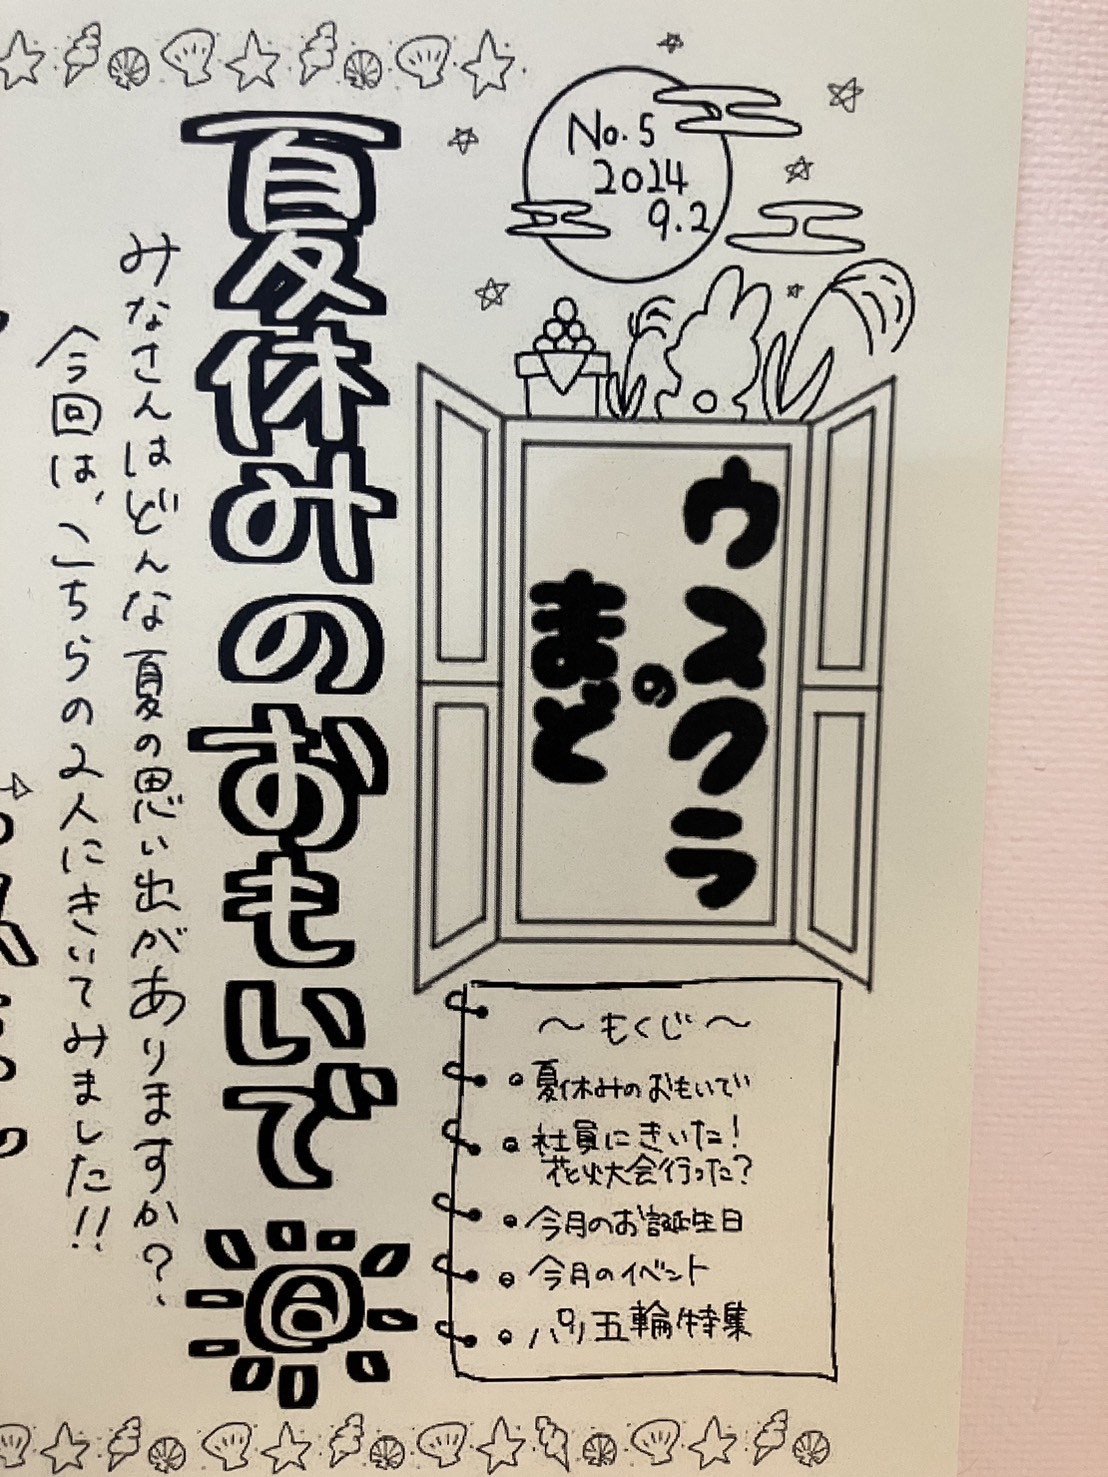 No.5
2024
9.2
ウスクラ
の
まど
～もくじ～
・夏休みのおもいで
・社員にきいた！
花火大会行った？
・今月のお誕生日
・今月のイベント
・パリ五輪特集
夏休みのおもいで
みなさんはどんな夏の思い出がありますか？
今回は、こちらの2人にきいてみました!!